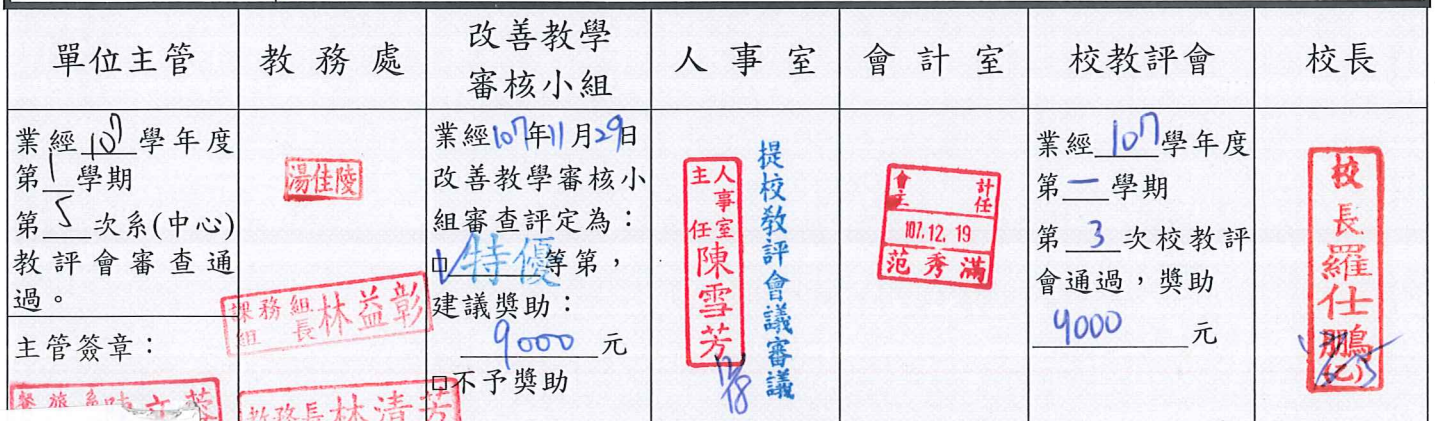 單位主管
教務處
改善教學
審核小組
人事室
會計室
校教評會
校長
業經107學年度
第1學期
第5次系(中心)
教評會審查通
過。
主管簽章：
湯佳陵
課務組
組長林益彰
教務長林清芳
業經107年11月29日
改善教學審核小
組審查評定為：
□特優等第，
建議獎助：
9000元
□不予獎助
人事室
主任陳雪芳
提校教評會議審議
會計
主任
107.12.19
范秀滿
業經107學年度
第一學期
第3次校教評
會通過，獎助
9000元
校長羅仕鵬